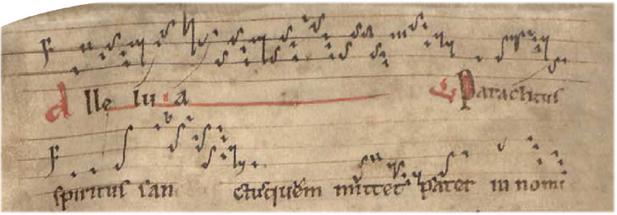 A lle lu i a ℣ Paraclitus
spiritus san ctus quem mittet pater in nomi